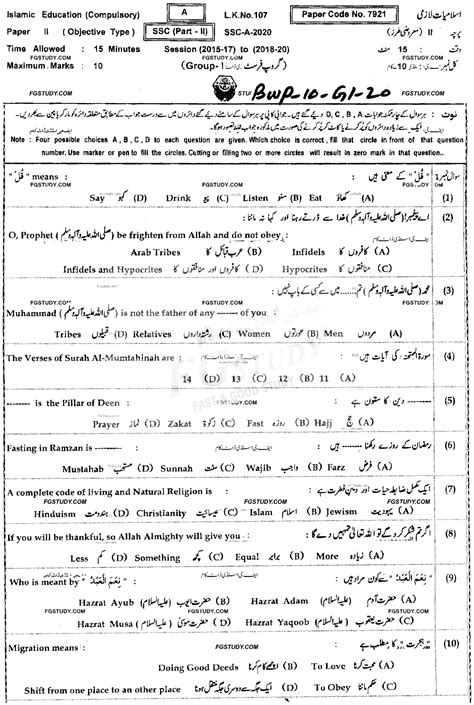 Islamic Education (Compulsory) A L.K.No.107 Paper Code No. 7921 اسلامیات لازمی
Paper II (Objective Type) SSC (Part - II) SSC-A-2020 پرچہ II (معروضی طرز)
Time Allowed : 15 Minutes Session (2015-17) to (2018-20) وقت : 15 منٹ
Maximum Marks : 10 (Group-1 گروپ فرسٹ) کل نمبر : 10
FGSTUDY.COM STU BWP-10-G1-20 FGSTUDY.COM
نوٹ :
Note : Four possible choices A , B , C , D to each question are given. Which choice is correct , fill that circle in front of that question
number. Use marker or pen to fill the circles. Cutting or filling two or more circles will result in zero mark in that question.
FGSTUDY.COM
" قُلْ " means : "قُلْ" کے معنی ہیں : سوال نمبر 1
FGSTUDY.COM
Say کہو (D) Drink پیو (C) Listen سنو (B) Eat کھاؤ (A) (1)
اے پیغمبر (صلی اللہ علیہ وآلہ وسلم) خدا سے ڈرتے رہنا اور کہا نہ ماننا : (2)
O, Prophet (صلی اللہ علیہ وآلہ وسلم) be frighten from Allah and do not obey :
Arab Tribes عرب قبائل کا (B) Infidels کافروں کا (A)
Infidels and Hypocrites کافروں اور منافقوں کا (D) Hypocrites منافقوں کا (C)
محمد (صلی اللہ علیہ وآلہ وسلم) تم ---- میں سے کسی کے باپ نہیں : (3)
FGSTUDY.COM
Muhammad (صلی اللہ علیہ وآلہ وسلم) is not the father of any ------ of you :
Tribes قبیلوں (D) Relatives رشتہ داروں (C) Women عورتوں (B) Men مردوں (A)
The Verses of Surah Al-Mumtahinah are : سورۃ الممتحنہ کی آیات ہیں : (4)
14 (D) 13 (C) 12 (B) 11 (A)
-------- is the Pillar of Deen : FGSTUDY.COM -------- دین کا ستون ہے : (5)
Prayer نماز (D) Zakat زکوٰۃ (C) Fast روزہ (B) Hajj حج (A)
Fasting in Ramzan is -------- : رمضان کے روزے رکھنا -------- ہیں : (6)
FGSTUDY.COM
Mustahab مستحب (D) Sunnah سنت (C) Wajib واجب (B) Farz فرض (A)
A complete code of living and Natural Religion is : ایک مکمل ضابطہ حیات اور دین فطرت ہے : (7)
FGSTUDY.COM
Hinduism ہندومت (D) Christianity عیسائیت (C) Islam اسلام (B) Jewism یہودیت (A)
If you will be thankful, so Allah Almighty will give you : اگر تم شکر کرو گے تو اللہ تعالیٰ تمہیں دے گا : (8)
Less کم (D) Something کچھ (C) Equal برابر (B) More زیادہ (A)
Who is meant by " نِعْمَ الْعَبْدُ " : "نِعْمَ الْعَبْدُ" سے کون مراد ہیں : (9)
FGSTUDY.COM
Hazrat Ayub (علیہ السلام) حضرت ایوب (B) Hazrat Adam (علیہ السلام) حضرت آدم (A)
Hazrat Musa (علیہ السلام) حضرت موسیٰ (D) Hazrat Yaqoob (علیہ السلام) حضرت یعقوب (C)
FGSTUDY.COM
Migration means : " ہجرت " کا مطلب ہے : (10)
Doing Good Deeds اچھے کام کرنا (B) To Love محبت کرنا (A)
Shift from one place to an other place ایک جگہ سے دوسری جگہ منتقل ہونا (D) To Obey حکم ماننا (C)
FGSTUDY.COM